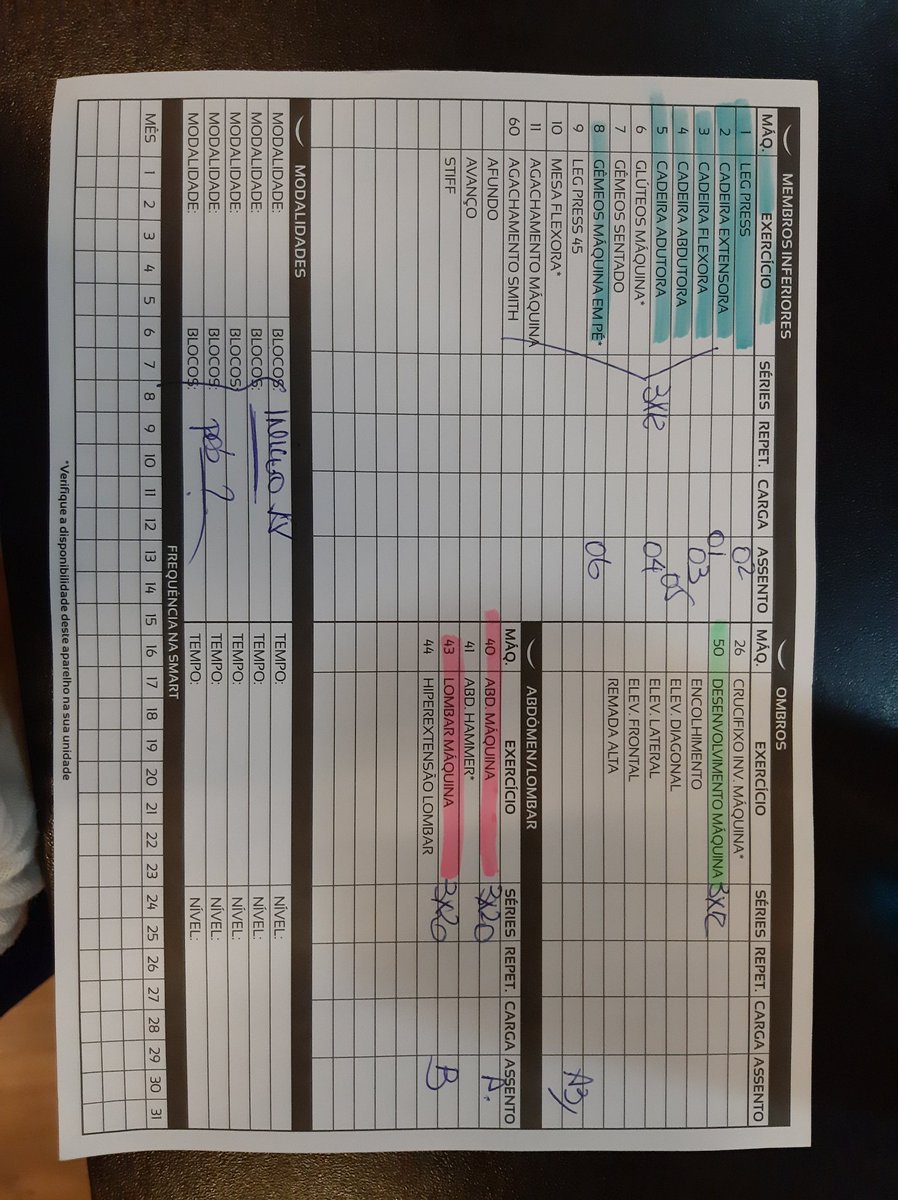 MEMBROS INFERIORES
MÁQ. EXERCÍCIO SÉRIES REPET. CARGA ASSENTO
1 LEG PRESS 02
2 CADEIRA EXTENSORA 01
3 CADEIRA FLEXORA 03
4 CADEIRA ABDUTORA 05
5 CADEIRA ADUTORA 04
6 GLÚTEOS MÁQUINA* 3X12
7 GÊMEOS SENTADO
8 GÊMEOS MÁQUINA EM PÉ* 06
9 LEG PRESS 45
10 MESA FLEXORA*
11 AGACHAMENTO MÁQUINA
60 AGACHAMENTO SMITH
AFUNDO
AVANÇO
STIFF
OMBROS
MÁQ. EXERCÍCIO SÉRIES REPET. CARGA ASSENTO
26 CRUCIFIXO INV. MÁQUINA*
50 DESENVOLVIMENTO MÁQUINA 3X12
ENCOLHIMENTO
ELEV. DIAGONAL
ELEV. LATERAL
ELEV. FRONTAL
REMADA ALTA
A3
ABDÓMEN/LOMBAR
MÁQ. EXERCÍCIO SÉRIES REPET. CARGA ASSENTO
40 ABD. MÁQUINA 3X20 A.
41 ABD. HAMMER*
43 LOMBAR MÁQUINA 3X20 B
44 HIPEREXTENSÃO LOMBAR
MODALIDADES
MODALIDADE: BLOCOS: TEMPO: NÍVEL:
MODALIDADE: BLOCOS: TEMPO: NÍVEL:
MODALIDADE: BLOCOS: TEMPO: NÍVEL:
MODALIDADE: BLOCOS: TEMPO: NÍVEL:
MODALIDADE: BLOCOS: TEMPO: NÍVEL:
FREQUÊNCIA NA SMART
MÊS 1 2 3 4 5 6 7 8 9 10 11 12 13 14 15 16 17 18 19 20 21 22 23 24 25 26 27 28 29 30 31
*Verifique a disponibilidade deste aparelho na sua unidade